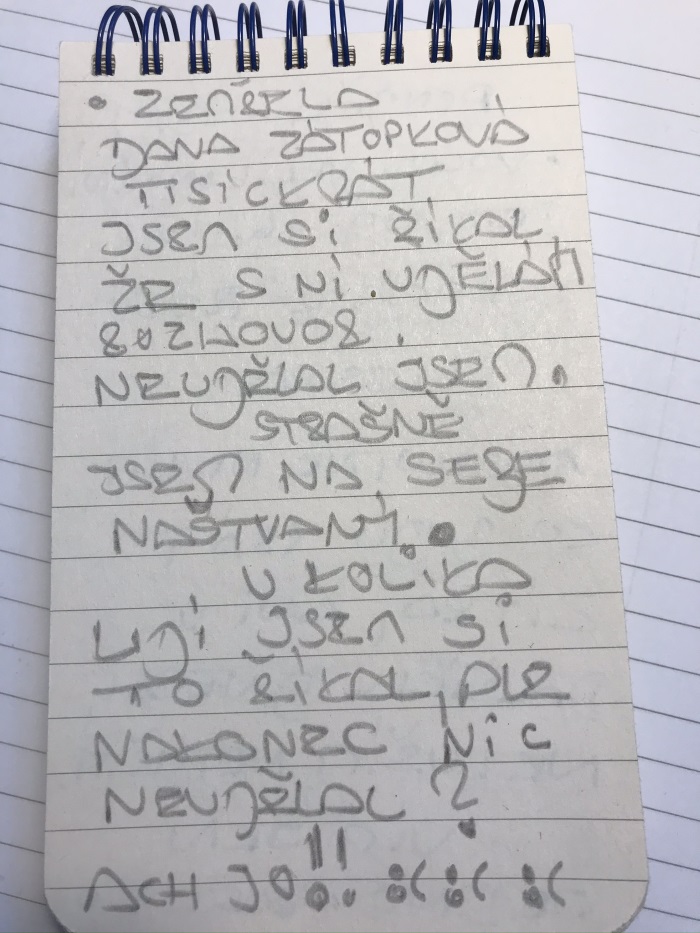 • ZEMŘELA
DANA ZÁTOPKOVÁ
TISÍCKRÁT
JSEM SI ŘÍKAL,
ŽE S NÍ UDĚLÁM
ROZHOVOR.
NEUDĚLAL JSEM.
STRAŠNĚ
JSEM NA SEBE
NAŠTVANÝ.
U KOLIKA
LIDÍ JSEM SI
TO ŘÍKAL, ALE
NAKONEC NIC
NEUDĚLAL?
ACH JO!! :( :( :(